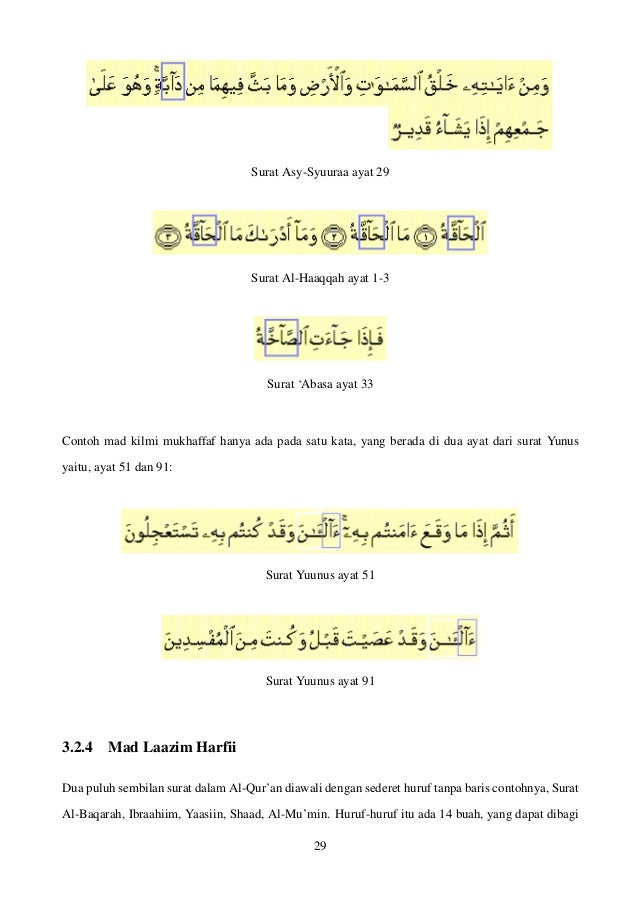 وَمِنْ ءَايَـٰتِهِۦ خَلْقُ ٱلسَّمَـٰوَٰتِ وَٱلْأَرْضِ وَمَا بَثَّ فِيهِمَا مِن دَآبَّةٍۚ وَهُوَ عَلَىٰ
جَمْعِهِمْ إِذَا يَشَآءُ قَدِيرٌ
Surat Asy-Syuuraa ayat 29
ٱلْحَآقَّةُ ١ مَا ٱلْحَآقَّةُ ٢ وَمَآ أَدْرَىٰكَ مَا ٱلْحَآقَّةُ ٣
Surat Al-Haaqqah ayat 1-3
فَإِذَا جَآءَتِ ٱلصَّآخَّةُ
Surat ‘Abasa ayat 33
Contoh mad kilmi mukhaffaf hanya ada pada satu kata, yang berada di dua ayat dari surat Yunus
yaitu, ayat 51 dan 91:
أَثُمَّ إِذَا مَا وَقَعَ ءَامَنتُم بِهِۦٓۚ ءَآلْـَٔـٰنَ وَقَدْ كُنتُم بِهِۦ تَسْتَعْجِلُونَ
Surat Yuunus ayat 51
ءَآلْـَٔـٰنَ وَقَدْ عَصَيْتَ قَبْلُ وَكُنتَ مِنَ ٱلْمُفْسِدِينَ
Surat Yuunus ayat 91
3.2.4 Mad Laazim Harfii
Dua puluh sembilan surat dalam Al-Qur’an diawali dengan sederet huruf tanpa baris contohnya, Surat
Al-Baqarah, Ibraahiim, Yaasiin, Shaad, Al-Mu’min. Huruf-huruf itu ada 14 buah, yang dapat dibagi
29